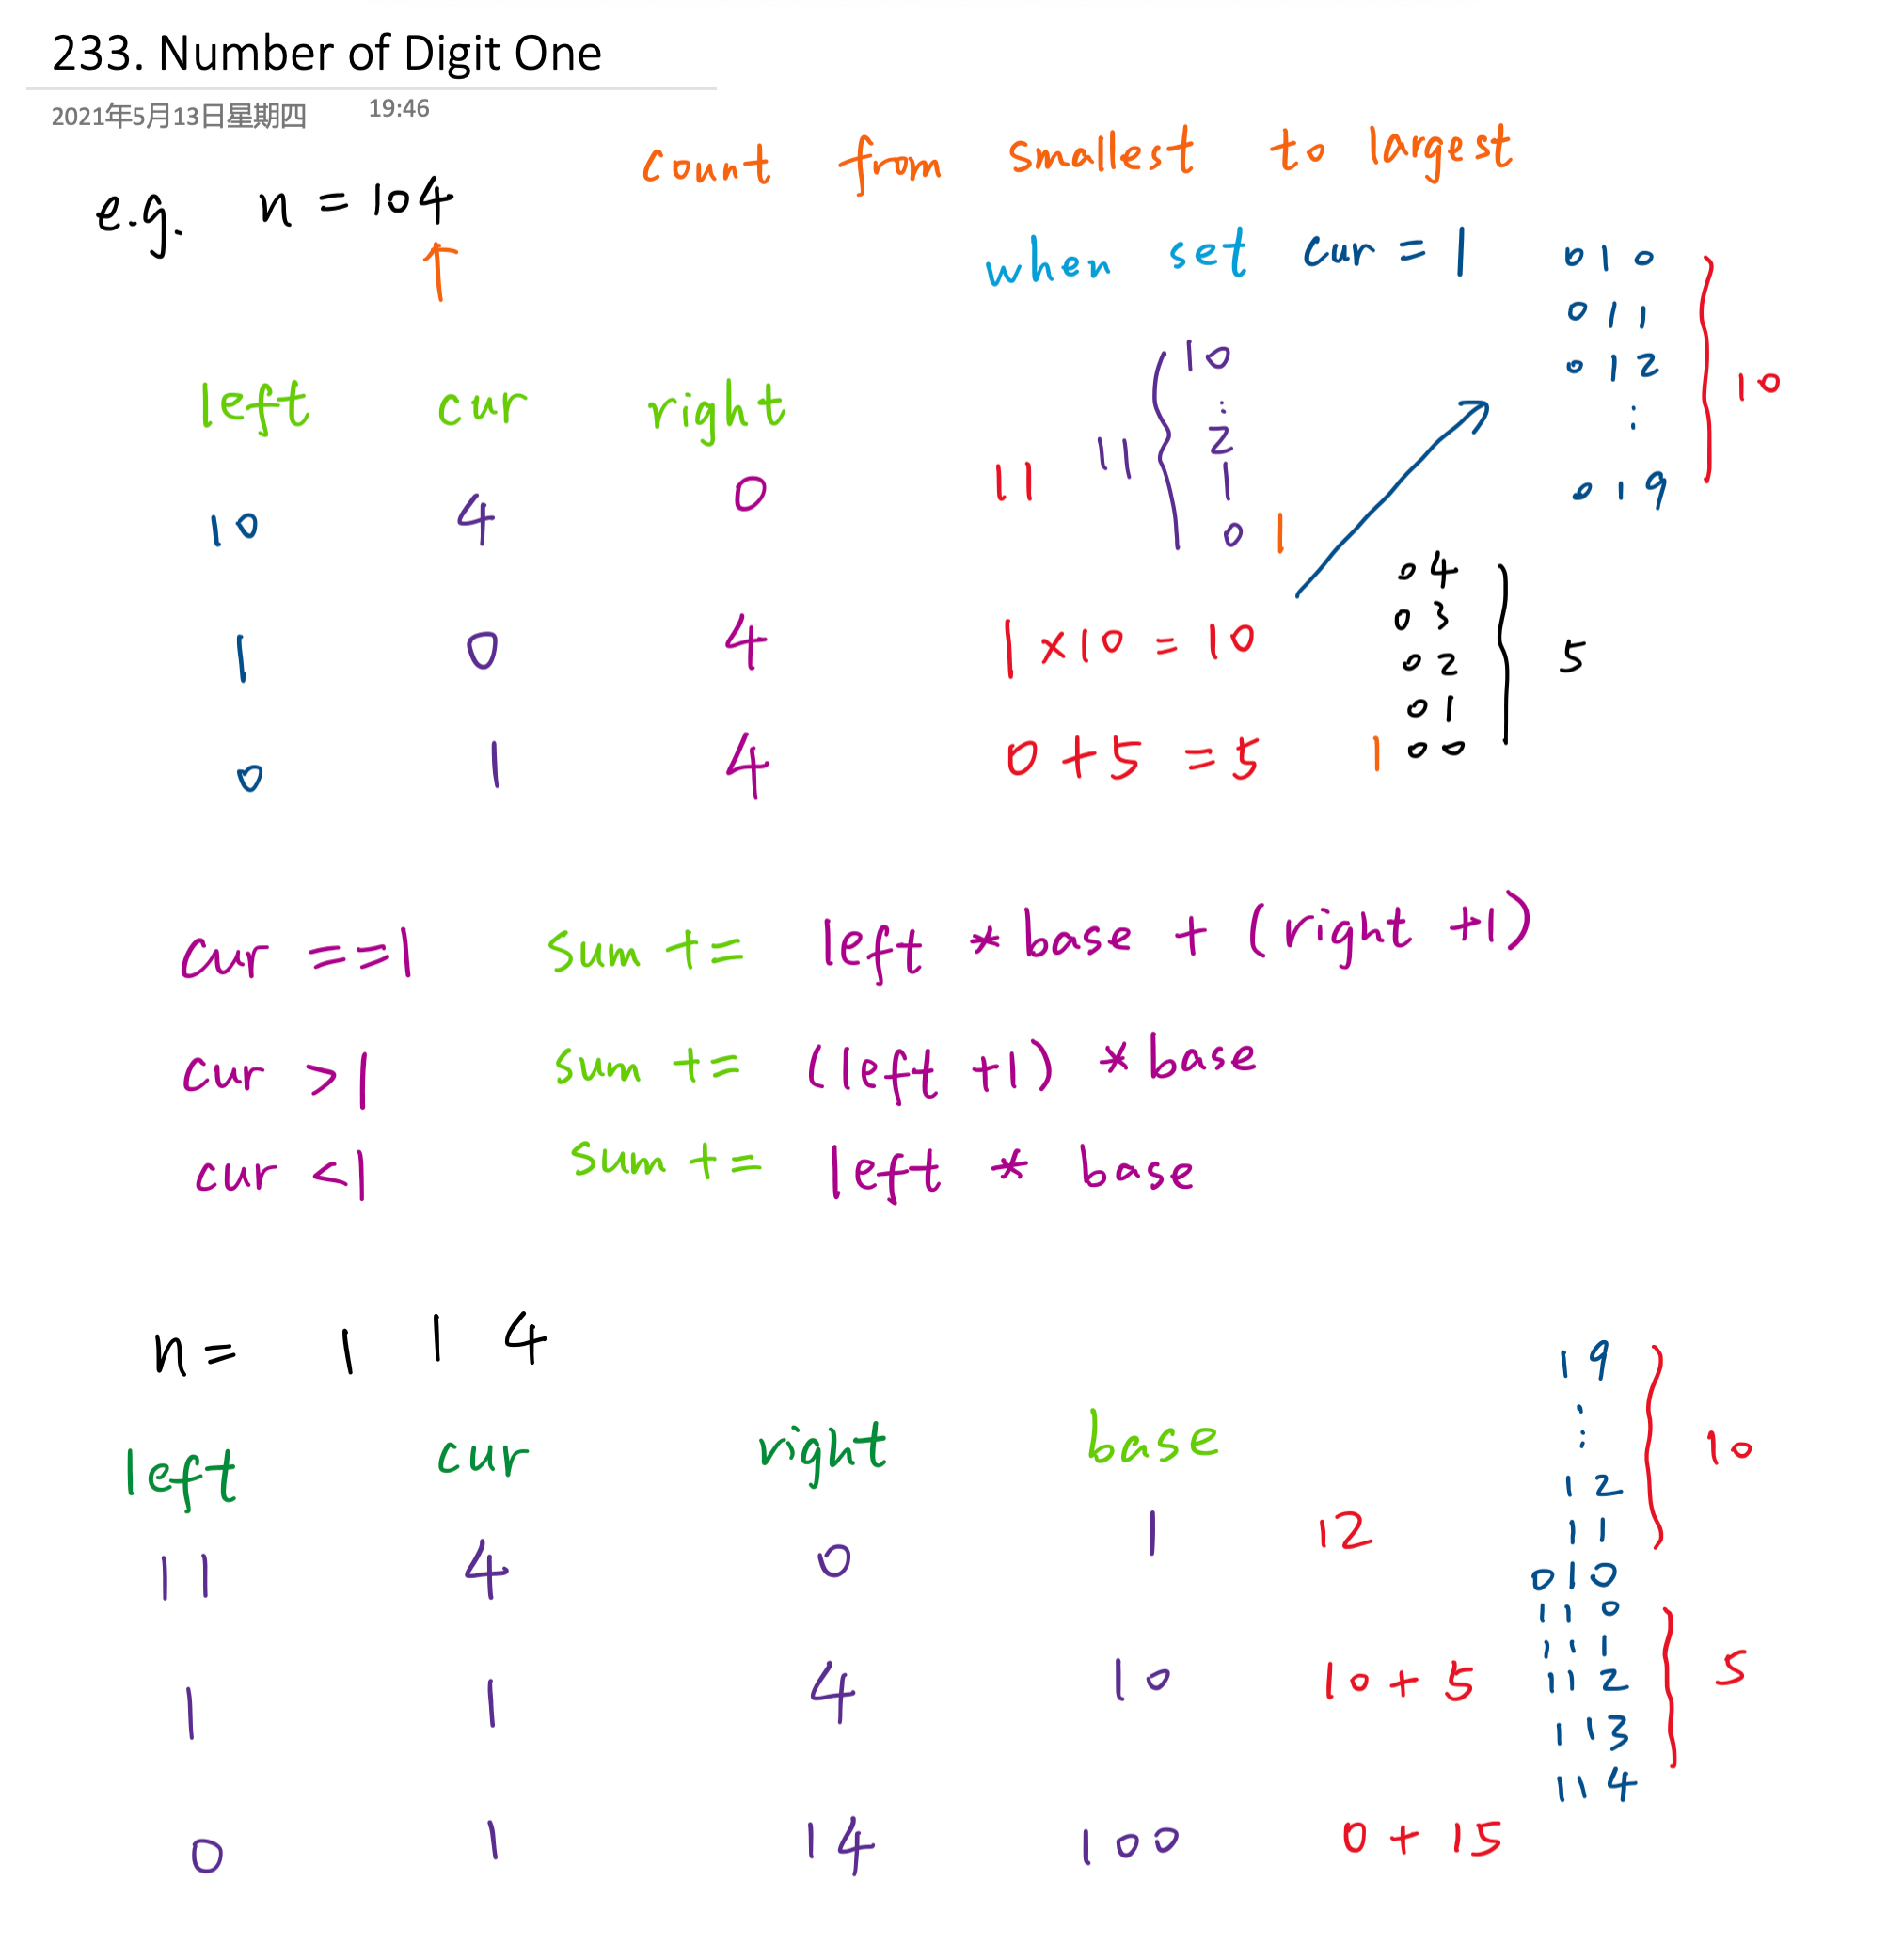 233. Number of Digit One
2021年5月13日星期四 19:46
count from smallest to largest
e.g. n = 104
↑
when set cur = 1
010
011
012
⋮
019
10
left cur right
10 4 0 11
11
10
⋮
2
1
0 1
1 0 4 1 × 10 = 10
0 1 4 0 + 5 = 5
04
03
02
01
1 00
5
cur == 1 sum += left * base + (right + 1)
cur > 1 sum += (left + 1) * base
cur < 1 sum += left * base
n = 1 1 4
left cur right base
11 4 0 1 12
1 1 4 10 10 + 5
0 1 14 100 0 + 15
19
⋮
12
11
010
10
110
111
112
113
114
5